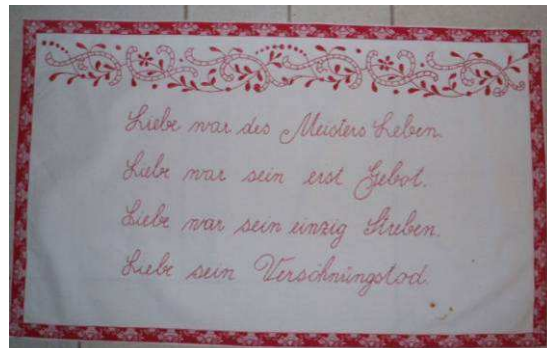 Liebe war des Meisters Leben.
Liebe war sein erst Gebot.
Liebe war sein einzig Streben.
Liebe sein Versöhnungstod.